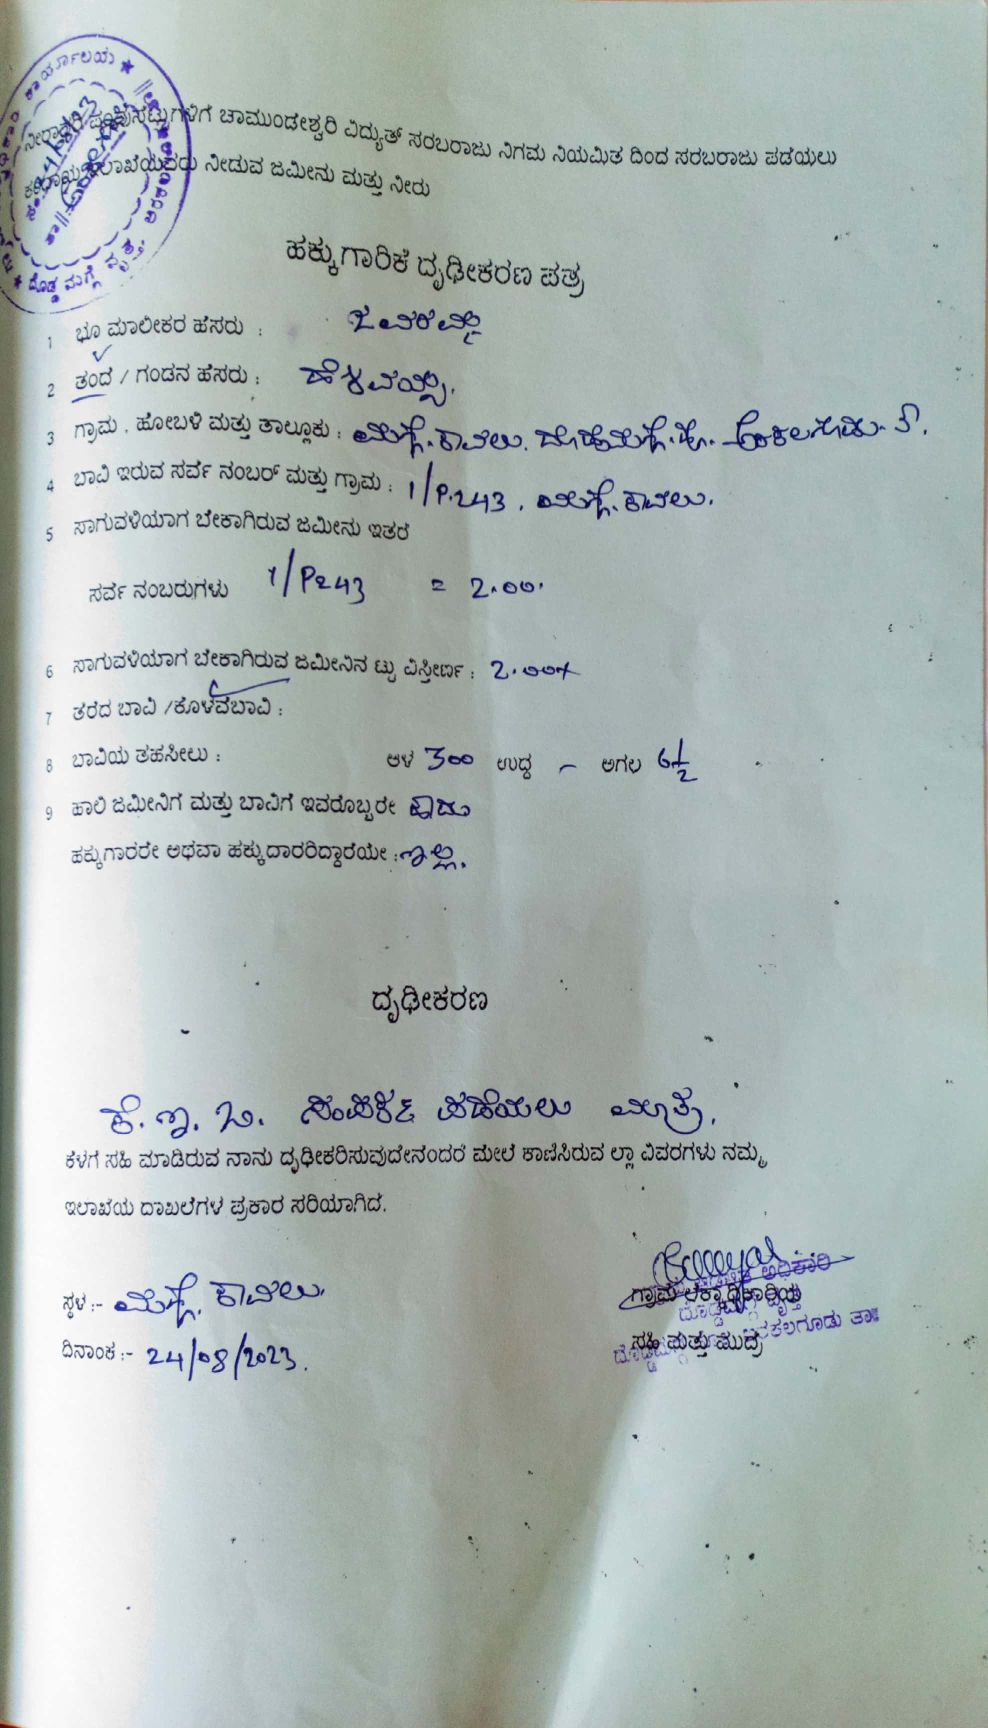 ಕಾರ್ಯಾಲಯ
ನೀರಾವರಿ ಪಂಪುಸೆಟ್ಟುಗಳಿಗೆ ಚಾಮುಂಡೇಶ್ವರಿ ವಿದ್ಯುತ್ ಸರಬರಾಜು ನಿಗಮ ನಿಯಮಿತ ದಿಂದ ಸರಬರಾಜು ಪಡೆಯಲು
ಕಂದಾಯ ಇಲಾಖೆಯವರು ನೀಡುವ ಜಮೀನು ಮತ್ತು ನೀರು
ದೊಡ್ಡಮಗ್ಗೆ ವೃತ್ತ
ಹಕ್ಕುಗಾರಿಕೆ ದೃಢೀಕರಣ ಪತ್ರ
1 ಭೂ ಮಾಲೀಕರ ಹೆಸರು :
2 ತಂದೆ / ಗಂಡನ ಹೆಸರು :
3 ಗ್ರಾಮ , ಹೋಬಳಿ ಮತ್ತು ತಾಲ್ಲೂಕು : ಮಗ್ಗೆ. ಕಾವಲು. ದೊಡ್ಡಮಗ್ಗೆ. ಹೋ. ಅರಕಲಗೂಡು. ತಾ.
4 ಬಾವಿ ಇರುವ ಸರ್ವೆ ನಂಬರ್ ಮತ್ತು ಗ್ರಾಮ : 1/P.243 , ಮಗ್ಗೆ. ಕಾವಲು.
5 ಸಾಗುವಳಿಯಾಗ ಬೇಕಾಗಿರುವ ಜಮೀನು ಇತರೆ
ಸರ್ವೆ ನಂಬರುಗಳು 1/P243 = 2.00.
6 ಸಾಗುವಳಿಯಾಗ ಬೇಕಾಗಿರುವ ಜಮೀನಿನ ಟ್ಟು ವಿಸ್ತೀರ್ಣ : 2.00
7 ತೆರೆದ ಬಾವಿ /ಕೊಳವೆಬಾವಿ :
8 ಬಾವಿಯ ತಹಸೀಲು : ಆಳ 300 ಉದ್ದ – ಅಗಲ 6 1/2
9 ಹಾಲಿ ಜಮೀನಿಗೆ ಮತ್ತು ಬಾವಿಗೆ ಇವರೊಬ್ಬರೇ ಹೌದು
ಹಕ್ಕುಗಾರರೇ ಅಥವಾ ಹಕ್ಕುದಾರರಿದ್ದಾರೆಯೇ : ಇಲ್ಲ.
ದೃಢೀಕರಣ
ಕೆ. ಇ. ಬಿ. ಸಂಪರ್ಕ ಪಡೆಯಲು ಮಾತ್ರ.
ಕೆಳಗೆ ಸಹಿ ಮಾಡಿರುವ ನಾನು ದೃಢೀಕರಿಸುವುದೇನೆಂದರೆ ಮೇಲೆ ಕಾಣಿಸಿರುವ ಲ್ಲಾ ವಿವರಗಳು ನಮ್ಮ
ಇಲಾಖೆಯ ದಾಖಲೆಗಳ ಪ್ರಕಾರ ಸರಿಯಾಗಿದೆ.
ಸ್ಥಳ :- ಮಗ್ಗೆ. ಕಾವಲು.
ಗ್ರಾಮ ಲೆಕ್ಕಾಧಿಕಾರಿಯ
ದಿನಾಂಕ :- 24/08/2023.
ಸಹಿ ಮತ್ತು ಮುದ್ರೆ